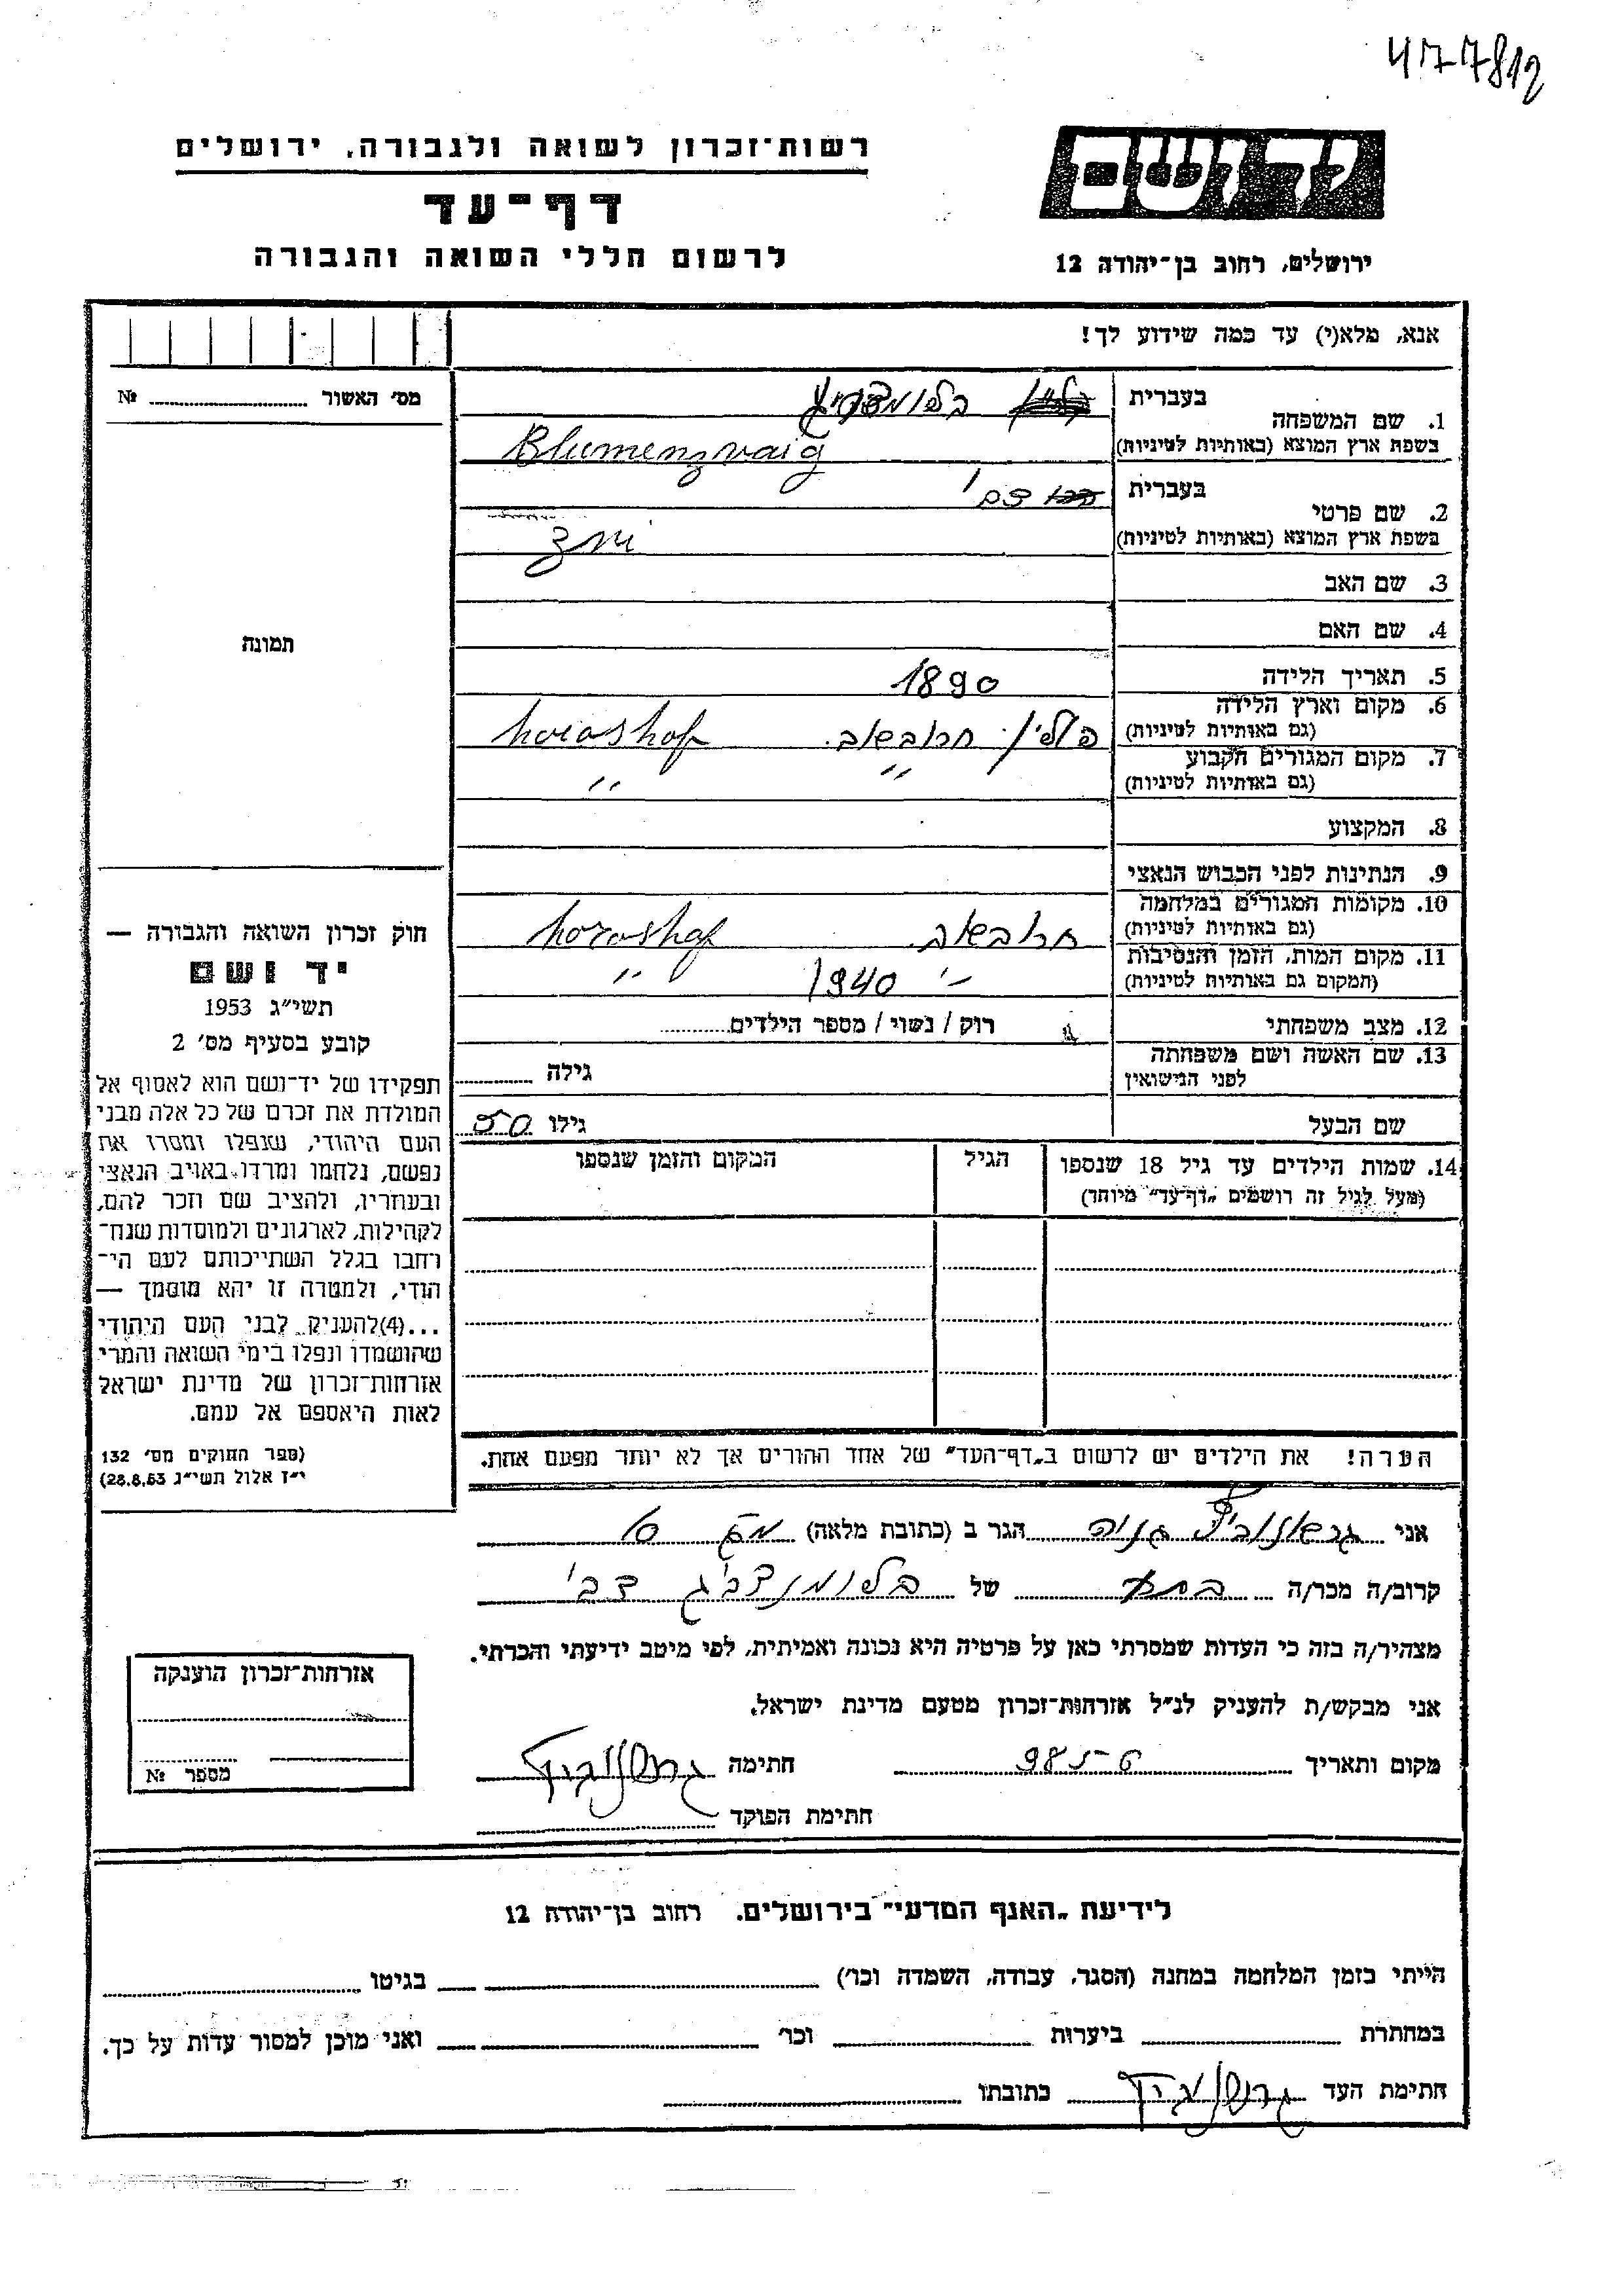 477812
רשות־זכרון לשואה ולגבורה, ירושלים
דף־עד
לרשום חללי השואה והגבורה
יד ושם
ירושלים, רחוב בן־יהודה 12
אנא, מלא(י) עד כמה שידוע לך!
מס׳ האשור № 
1. שם המשפחה
בעברית
בשפת ארץ המוצא (באותיות לטיניות)
Blumenzvaig
2. שם פרטי
בעברית
בשפת ארץ המוצא (באותיות לטיניות)
3. שם האב
4. שם האם
תמונה
5. תאריך הלידה 1890
6. מקום וארץ הלידה
(גם באותיות לטיניות)
פולין חרובשוב. horoshof
7. מקום המגורים הקבוע
(גם באותיות לטיניות)
״ ״
8. המקצוע
9. הנתינות לפני הכבוש הנאצי
10. מקומות המגורים במלחמה
(גם באותיות לטיניות)
חרובשוב. horoshof
11. מקום המות, הזמן והנסיבות
(המקום גם באותיות לטיניות)
1940 ״
12. מצב משפחתי רוק / נשוי / מספר הילדים
13. שם האשה ושם משפחתה
לפני הנישואין
גילה
שם הבעל גילו 50
14. שמות הילדים עד גיל 18 שנספו
(מעל לגיל זה רושמים „דף־עד״ מיוחד)
הגיל
המקום והזמן שנספו
הערה! את הילדים יש לרשום ב„דף־העד״ של אחד ההורים אך לא יותר מפעם אחת.
חוק זכרון השואה והגבורה —
יד ושם
תשי״ג 1953
קובע בסעיף מס׳ 2
תפקידו של יד־ושם הוא לאסוף אל
המולדת את זכרם של כל אלה מבני
העם היהודי, שנפלו ומסרו את
נפשם, נלחמו ומרדו באויב הנאצי
ובעוזריו, ולהציב שם וזכר להם,
לקהילות, לארגונים ולמוסדות שנח־
רחבו בגלל השתייכותם לעם הי־
הודי, ולמטרה זו יהא מוסמך —
...(4)להעניק לבני העם היהודי
שהושמדו ונפלו בימי השואה והמרי
אזרחות־זכרון של מדינת ישראל
לאות היאספם אל עמם.
(ספר החוקים מס׳ 132
י״ז אלול תשי״ג 28.8.53)
אני הגר ב (כתובת מלאה)
קרוב/ה מכר/ה של בלומנצביג צבי
מצהיר/ה בזה כי העדות שמסרתי כאן על פרטיה היא נכונה ואמיתית, לפי מיטב ידיעתי והכרתי.
אני מבקש/ת להעניק לנ״ל אזרחות־זכרון מטעם מדינת ישראל.
מקום ותאריך חתימה
חתימת הפוקד
אזרחות־זכרון הוענקה
מספר №
לידיעת „האנף המדעי״ בירושלים. רחוב בן־יהודה 12
הייתי בזמן המלחמה במחנה (הסגר, עבודה, השמדה וכו׳) בגיטו
במחתרת ביערות וכו׳ ואני מוכן למסור עדות על כך.
חתימת העד כתובתו